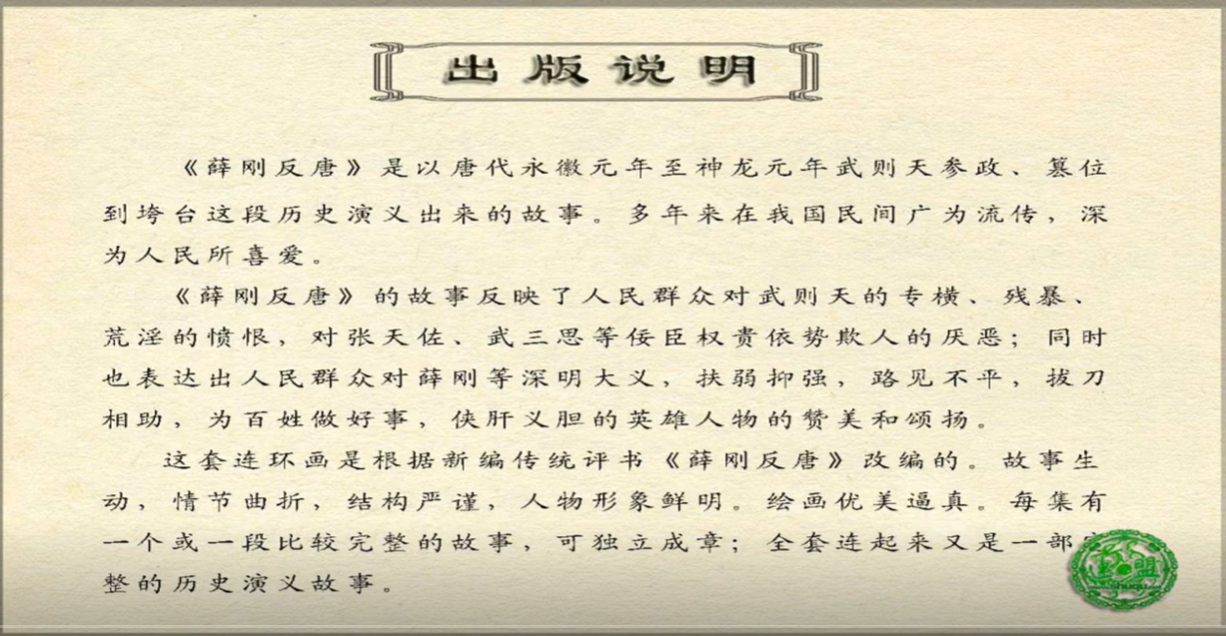 出版说明
《薛刚反唐》是以唐代永徽元年至神龙元年武则天参政、篡位
到垮台这段历史演义出来的故事。多年来在我国民间广为流传，深
为人民所喜爱。
《薛刚反唐》的故事反映了人民群众对武则天的专横、残暴、
荒淫的愤恨，对张天佐、武三思等佞臣权贵依势欺人的厌恶；同时
也表达出人民群众对薛刚等深明大义，扶弱抑强，路见不平，拔刀
相助，为百姓做好事，侠肝义胆的英雄人物的赞美和颂扬。
这套连环画是根据新编传统评书《薛刚反唐》改编的。故事生
动，情节曲折，结构严谨，人物形象鲜明。绘画优美逼真。每集有
一个或一段比较完整的故事，可独立成章；全套连起来又是一部
整的历史演义故事。
盟